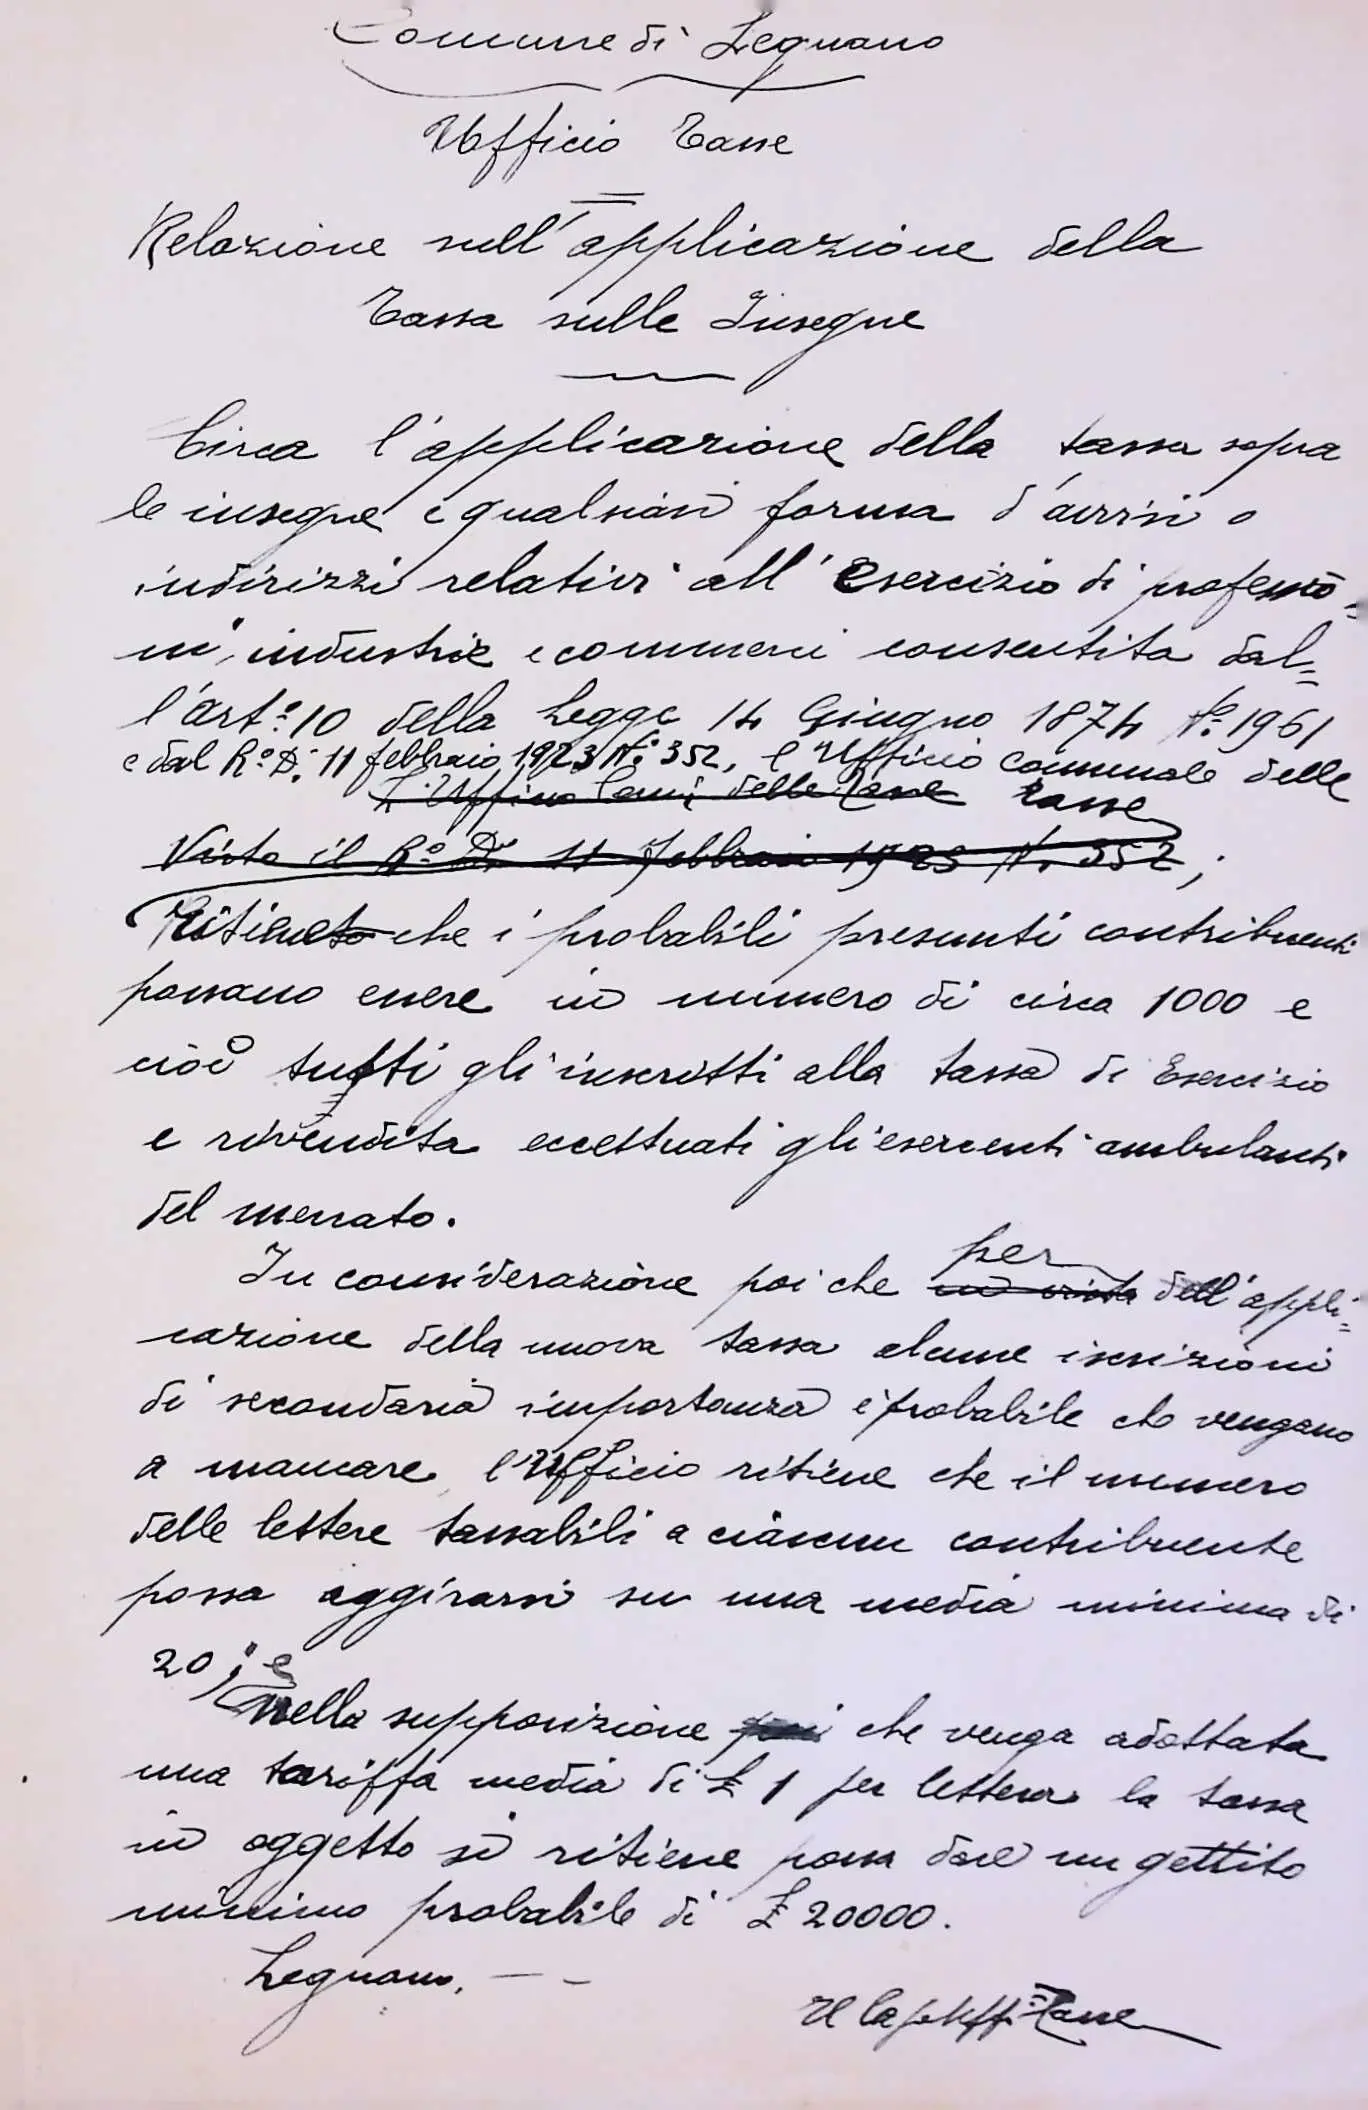 Comune di Legnano
Ufficio Tasse
Relazione sull'applicazione della
Tassa sulle Insegne
Circa l'applicazione della tassa sopra
le insegne e qualsiasi forma d'avvisi o
indirizzi relativi all'esercizio di professio=
ni, industrie e commerci consentita dal=
l'art.º 10 della Legge 14 Giugno 1874 Nº. 1961
e dal Rº. D. 11 febbraio 1923 Nº. 352, l'Ufficio comunale delle
L'Ufficio Com. delle Tasse Tasse
Visto il Rº Dº 11 Febbraio 1923 N. 352;
Ritiene che i probabili presunti contribuenti
possano essere in numero di circa 1000 e
cioè tutti gli inscritti alla tassa di Esercizio
e rivendita eccettuati gli esercenti ambulanti
del mercato.
per
In considerazione poi che in vista dell'appli=
cazione della nuova tassa alcune iscrizioni
di secondaria importanza è probabile che vengano
a mancare, l'Ufficio ritiene che il numero
delle lettere tassabili a ciascun contribuente
possa aggirarsi su una media minima di
20; e
Nella supposizione poi che venga adottata
una tariffa media di £ 1 per lettera la tassa
in oggetto si ritiene possa dare un gettito
minimo probabile di £ 20000.
Legnano, - -
Il Capo Uff. Tasse